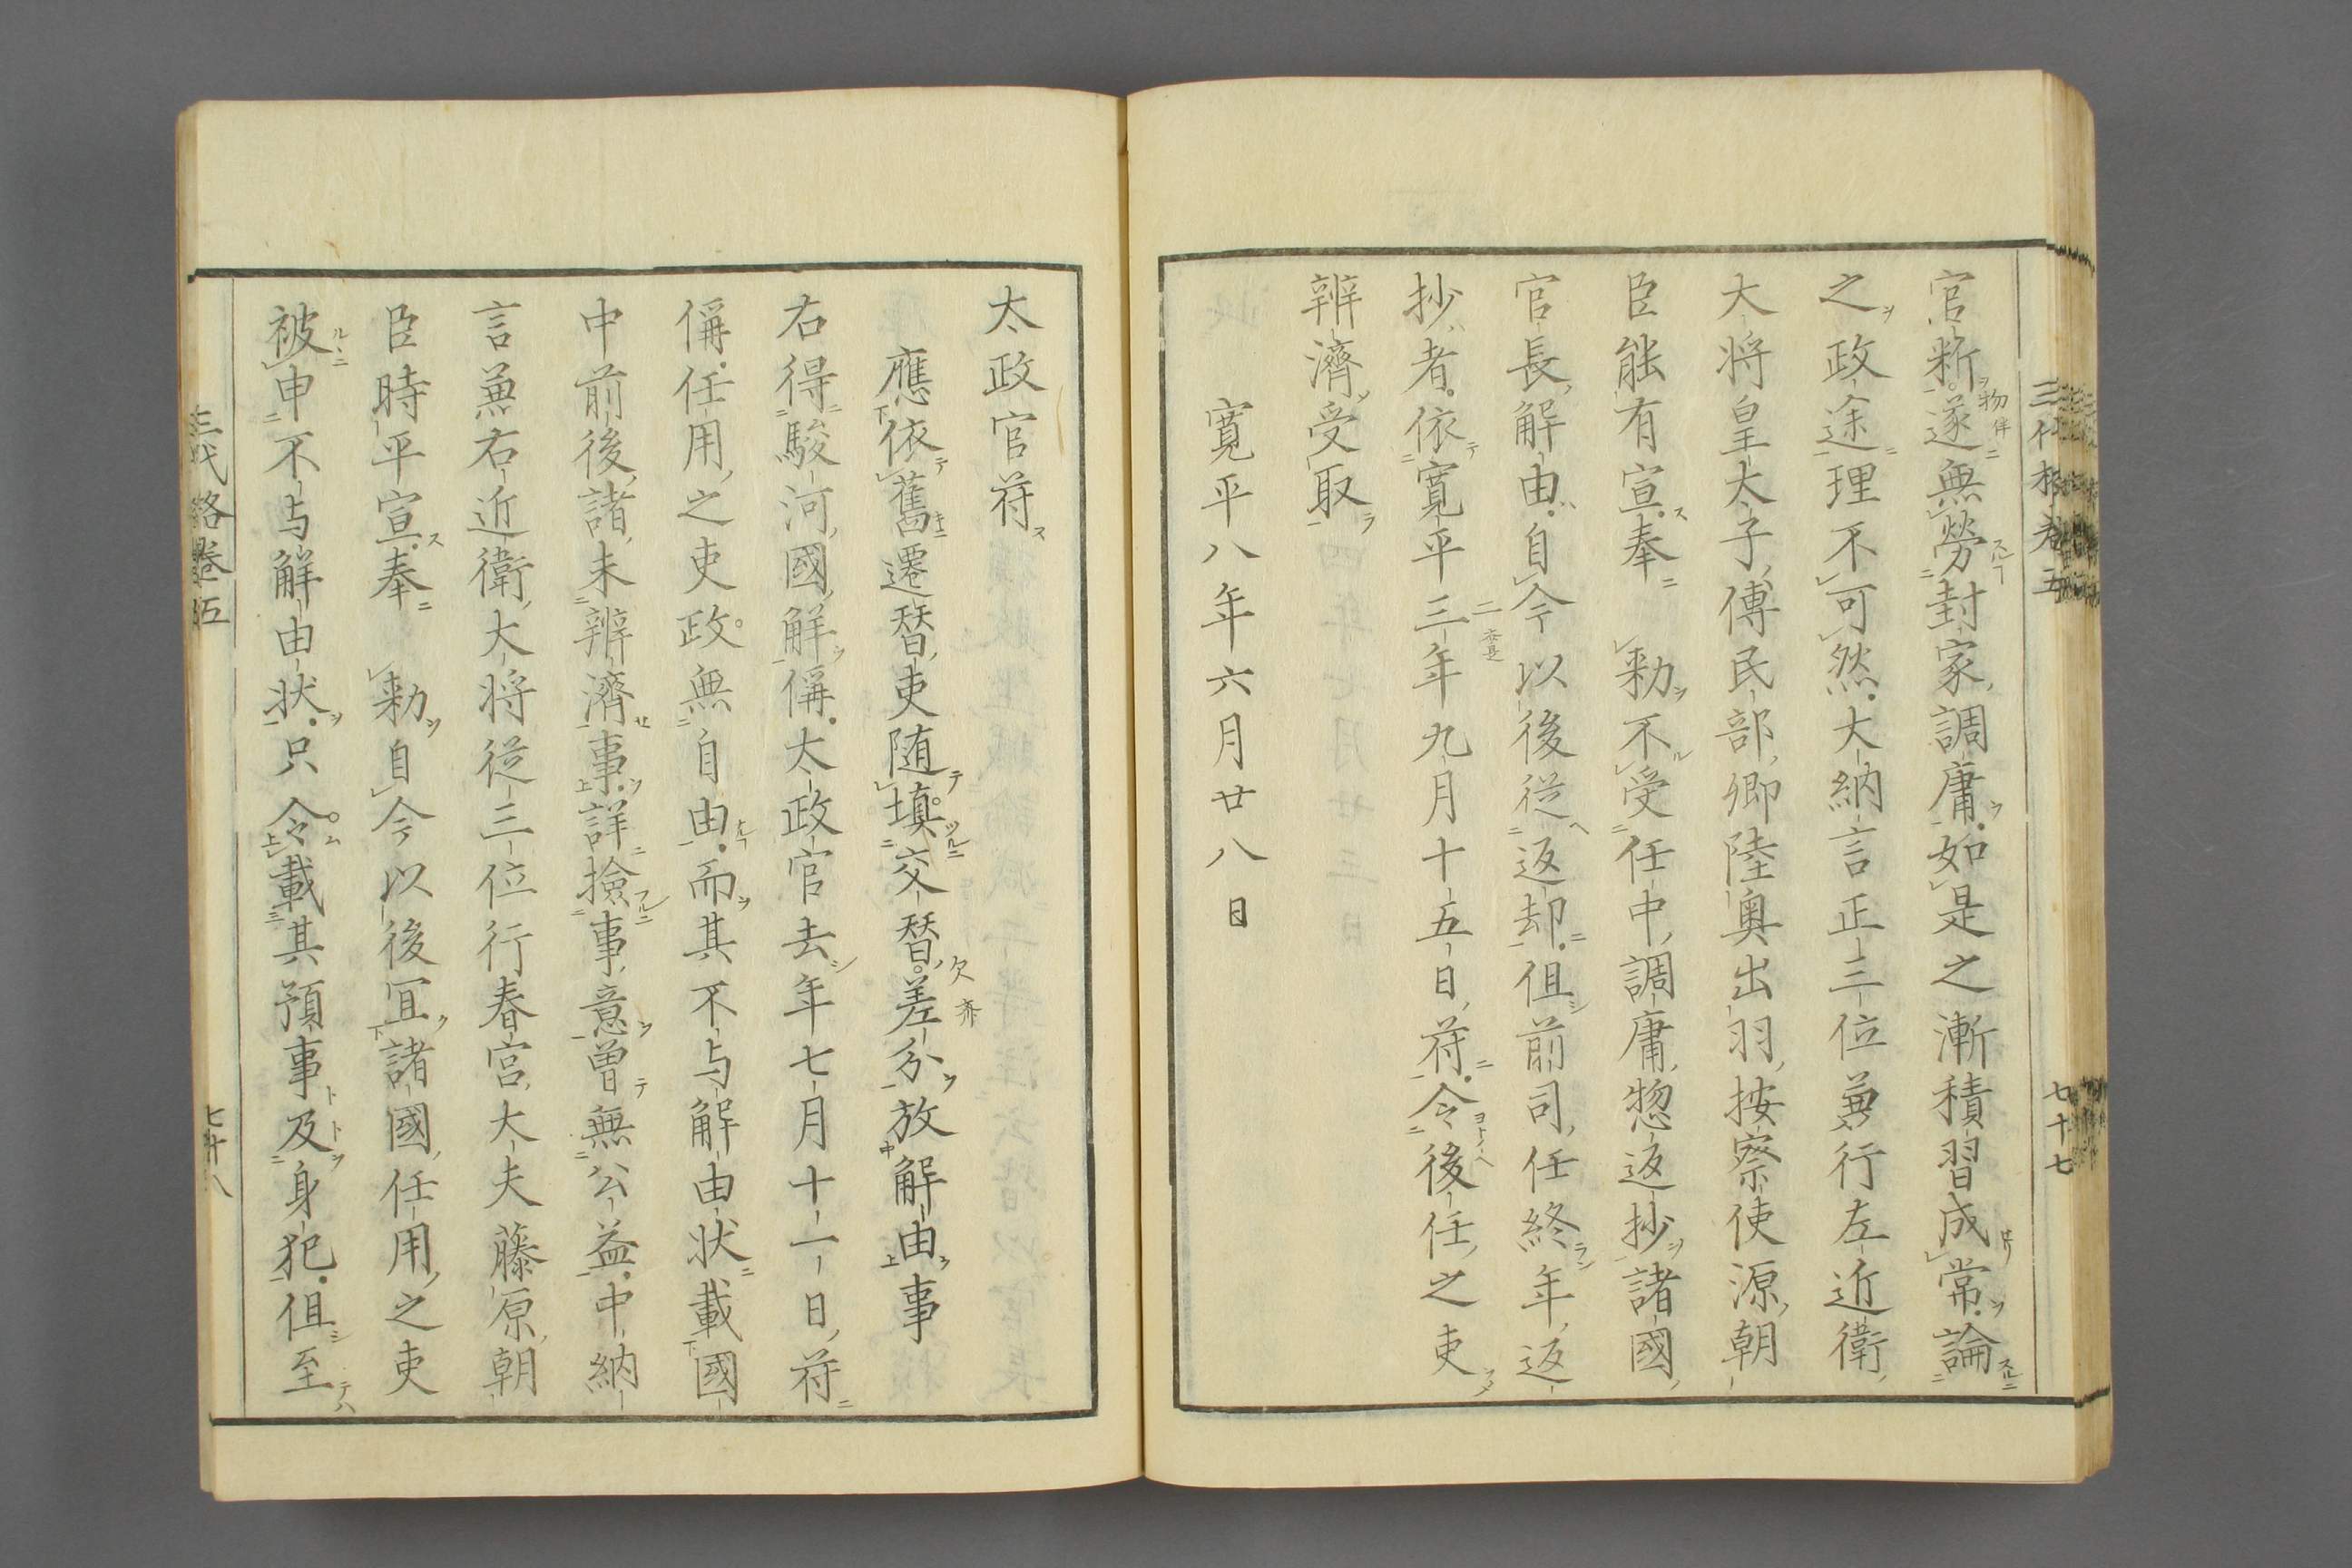 官粎遂無勞封家調庸如是之漸積習成常論
之政途理不可然大納言正三位兼行左近衛
大将皇太子傅民部卿陸奥出羽按察使源朝
臣能有宣奉　勅不受任中調庸惣返抄諸國
官長解由自今以後従返却但前司任終年返
抄者依寛平三年九月十五日符令後任之吏
辨濟受取
寛平八年六月廿八日
七十七
太政官符
應依舊遷替吏随填交替差分放解由事
右得駿河國解偁太政官去年七月十一日符
偁任用之吏政無自由而其不与解由状載國
中前後諸未辨濟事詳撿事意曽無公益中納
言兼右近衛大将従三位行春宮大夫藤原朝
臣時平宣奉　勅自今以後冝諸國任用之吏
被申不与解由状只令載其預事及身犯但至
三代格卷五
七十八